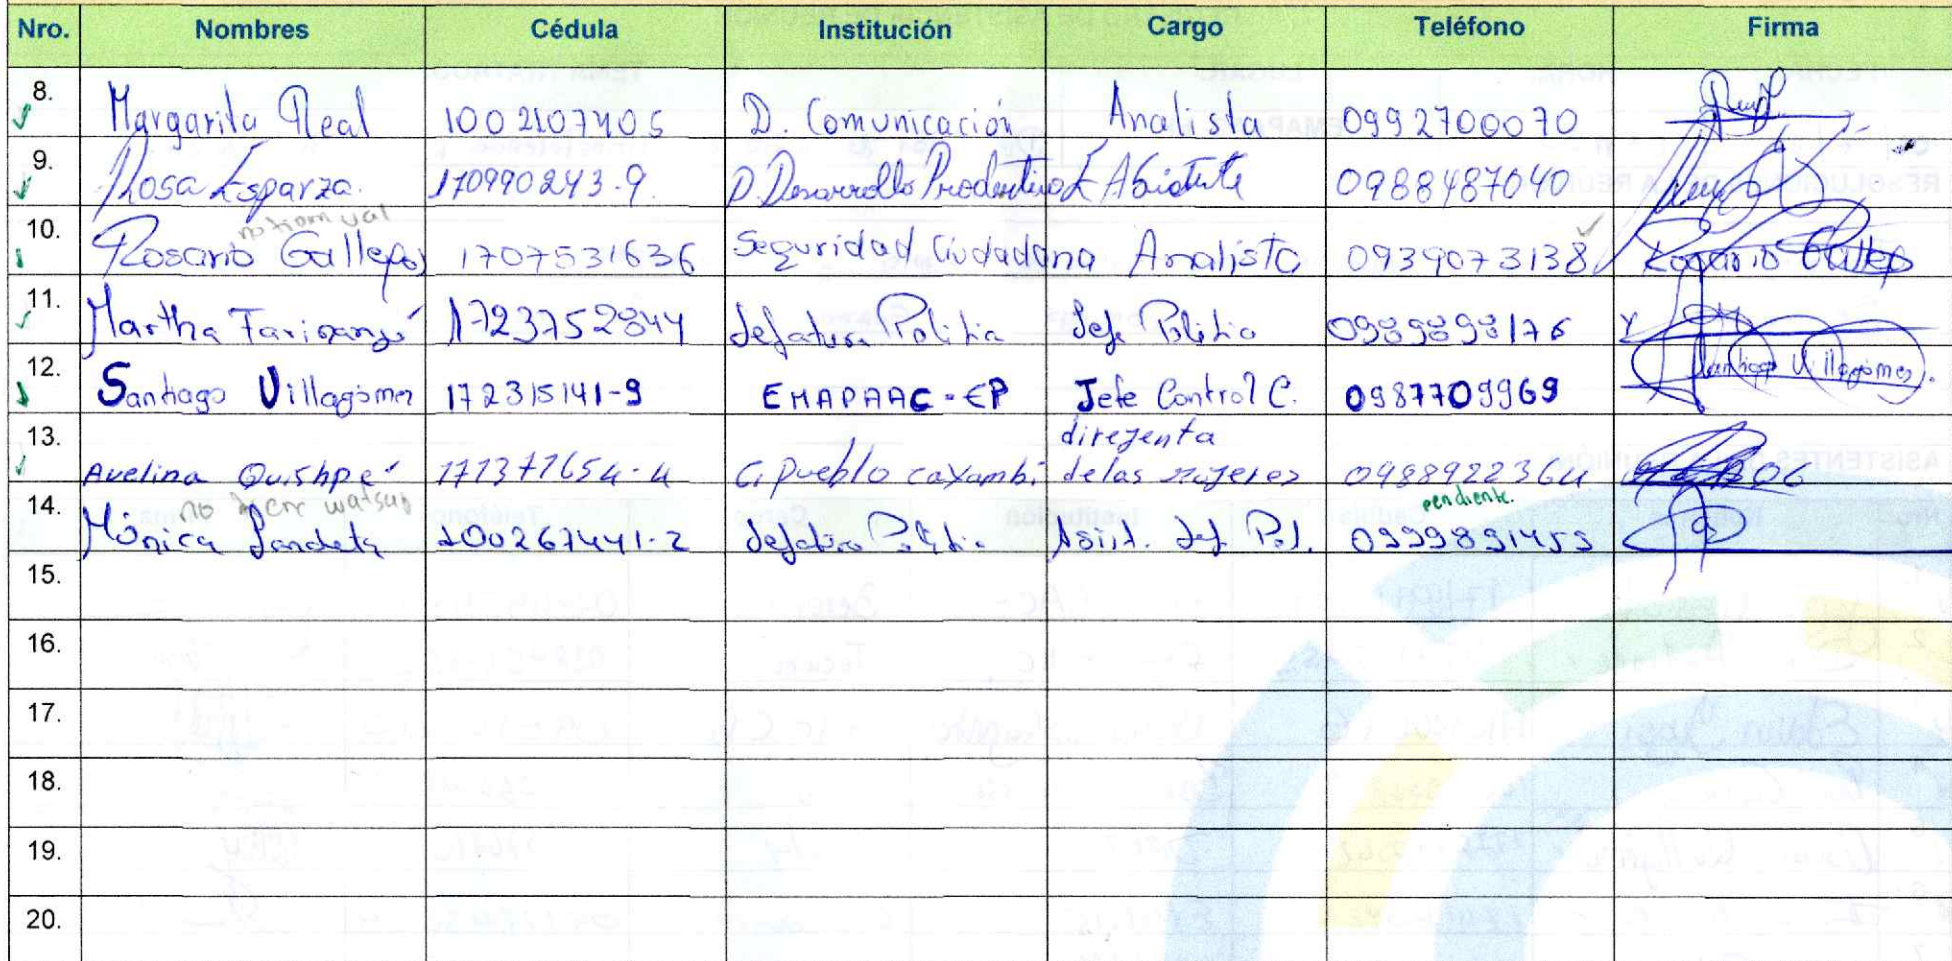 Nro. Nombres Cédula Institución Cargo Teléfono Firma
8. Margarita Real 1002107405 D. Comunicación Analista 0992700070
9. Rosa Esparza. 170990243-9. D. Desarrollo Productivo E Asistente 0988487040
no tiom val
10. Rosario Gallegos 1707531636 Seguridad Ciudadana Analista 0939073138 Rosario Gallegos
11. Martha 1723752844 Jefatura Politia Jefe Politio 0989898176
12. Santiago Villagómez 172315141-9 EMAPAAC-EP Jefe Control C. 0987709969 Santiago Villagómez.
13. Avelina Quishpe 171377654-4 G. Pueblo cayambi direjenta
de las mujeres 0988922364
no tiene watsap pendiente.
14. Mónica Landeta 100267441-2 Jefatura Politia Asist. Jef. Pol. 0999891459
15.
16.
17.
18.
19.
20.